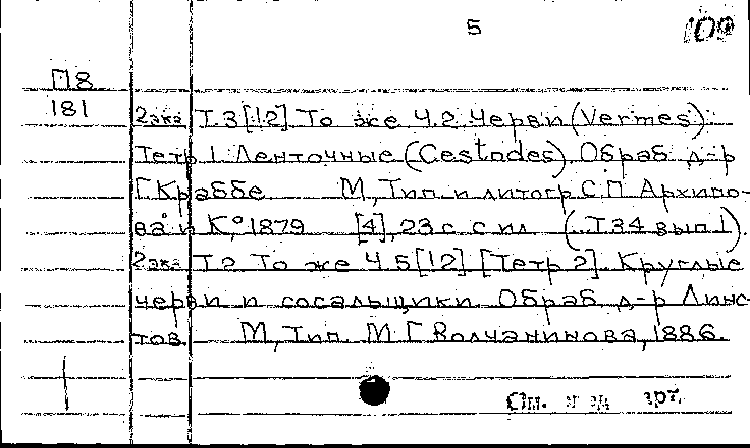 5 109
П8
181 2экз Т.3[!2] То же Ч.2. Черви (Vermes).
Тетр 1. Ленточные (Cestodes) Обраб д-р
Г Краббе М, Тип. и литогр С.П Архипо-
ва и К°, 1879 [4], 23 с с ил (..Т 34 вып 1).
2экз Т.? То же Ч 5[!2] [Тетр 2]. Круглые
черви и сосальщики Обраб д-р Линс
тов М, Тип. М Г Волчанинова, 1886.
См.